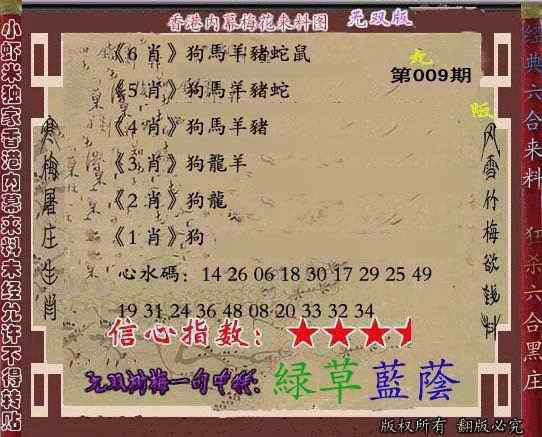 香港内幕梅花来料图 无双版
《6 肖》狗馬羊豬蛇鼠
第009期
《5 肖》狗馬羊豬蛇
《4 肖》狗馬羊豬
《3 肖》狗龍羊
《2 肖》狗龍
《1 肖》狗
心水碼：14 26 06 18 30 17 29 25 49
19 31 24 36 48 08 20 33 32 34
信心指数：★★★
无双湖梅一句中特：綠草藍蔭
版权所有 翻版必究
小虾米独家香港内幕来料未经允许不得转贴
寒梅屠庄生肖
风雪竹梅欲钱料
经典六合来料
狂杀六合黑庄